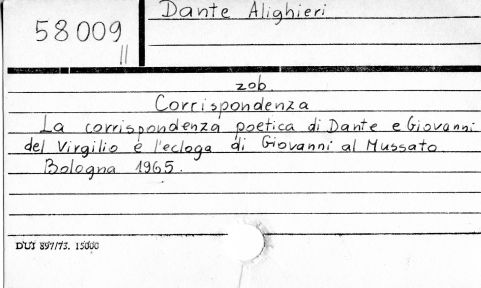 Dante Alighieri
58009
II
zob.
Corrispondenza
La corrispondenza poetica di Dante e Giovanni
del Virgilio e l'ecloga di Giovanni al Mussato.
Bologna 1965.
DUI 897/73. 15000